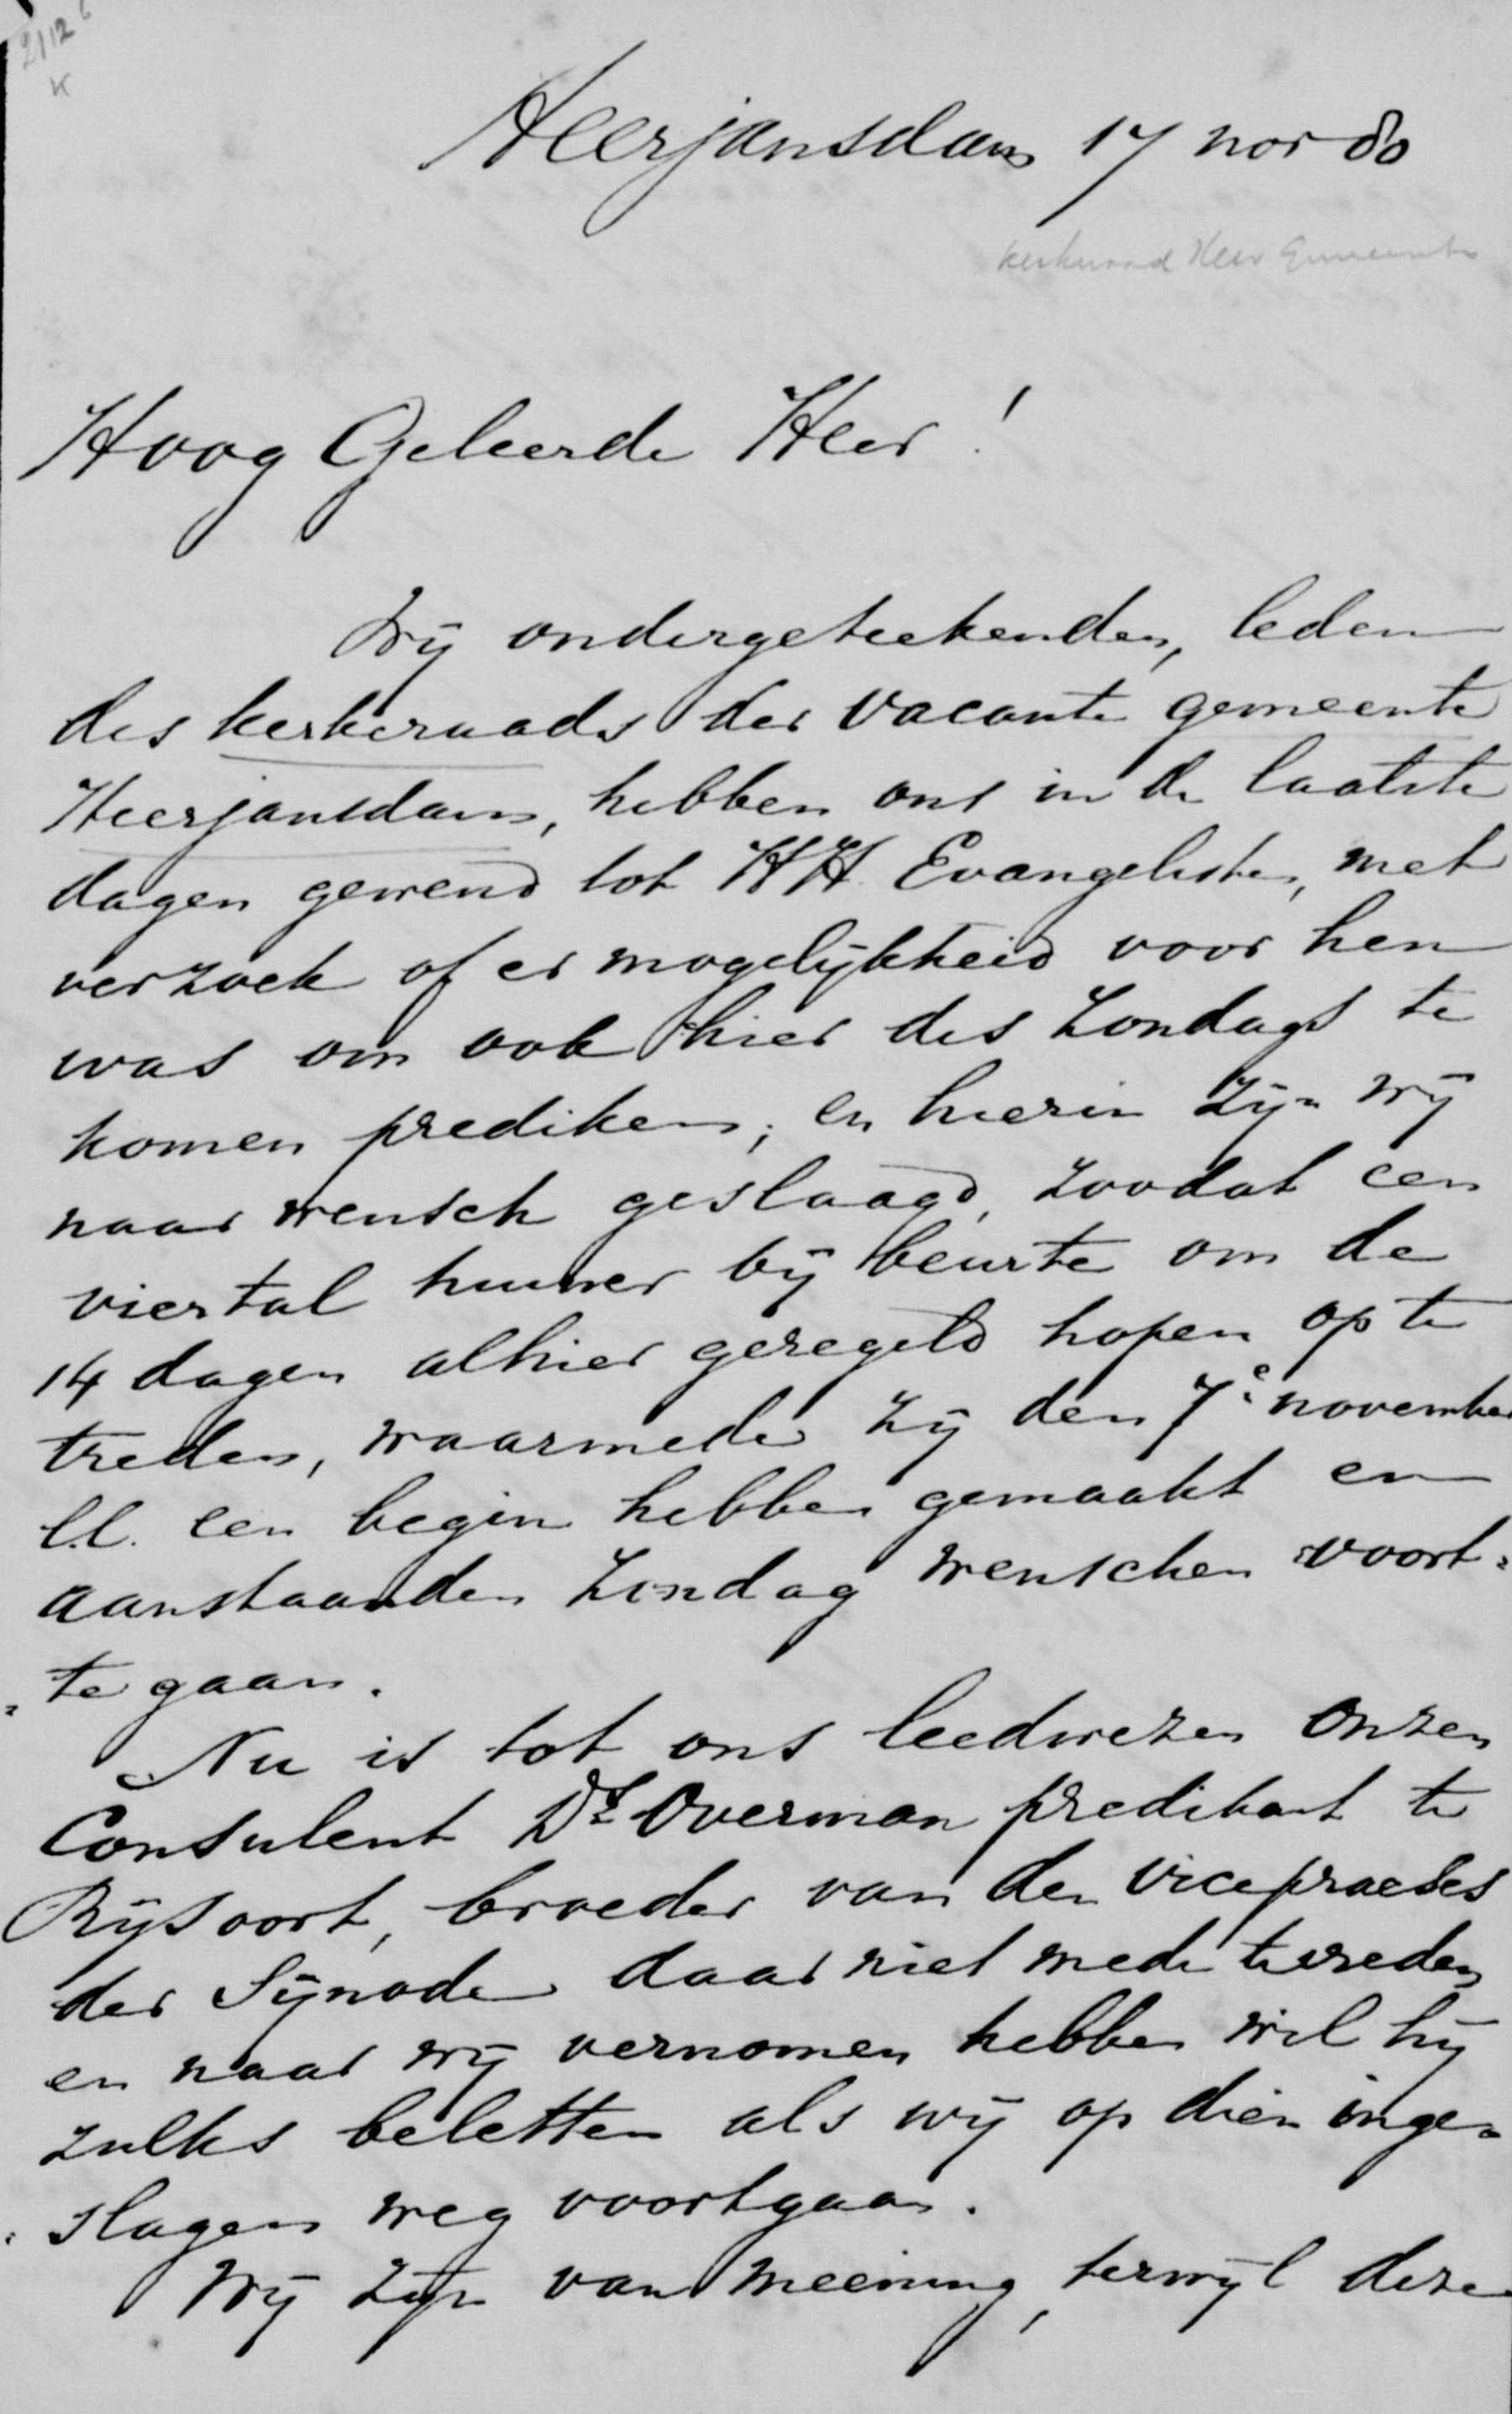 2112
K
Heerjansdam 17 nov 80
kerkeraad Herv Gemeente
Hoog Geleerde Heer!
Wij ondergeteekenden, leden
des kerkeraads der vacante gemeente
Heerjansdam, hebben ons in de laatste
dagen gewend tot HH. Evangelisten, met
verzoek of er mogelijkheid voor hen
was om ook hier des Zondags te
komen prediken; en hierin zijn wij
naar wensch geslaagd, zoodat een
viertal hunner bij beurte om de
14 dagen alhier geregeld hopen op te
treden, waarmede zij den 7e november
l.l. een begin hebben gemaakt en
aanstaanden Zondag wenschen voort=
=te gaan.
Nu is tot ons leedwezen onzen
Consulent Ds Overman predikant te
Rijsoort, broeder van den vicepraeses
der Synode daar niet mede tevreden
en naar wij vernomen hebben wil hij
zulks beletten als wij op dien inge=
=slagen weg voortgaan.
Wij zijn van meening, terwijl deze